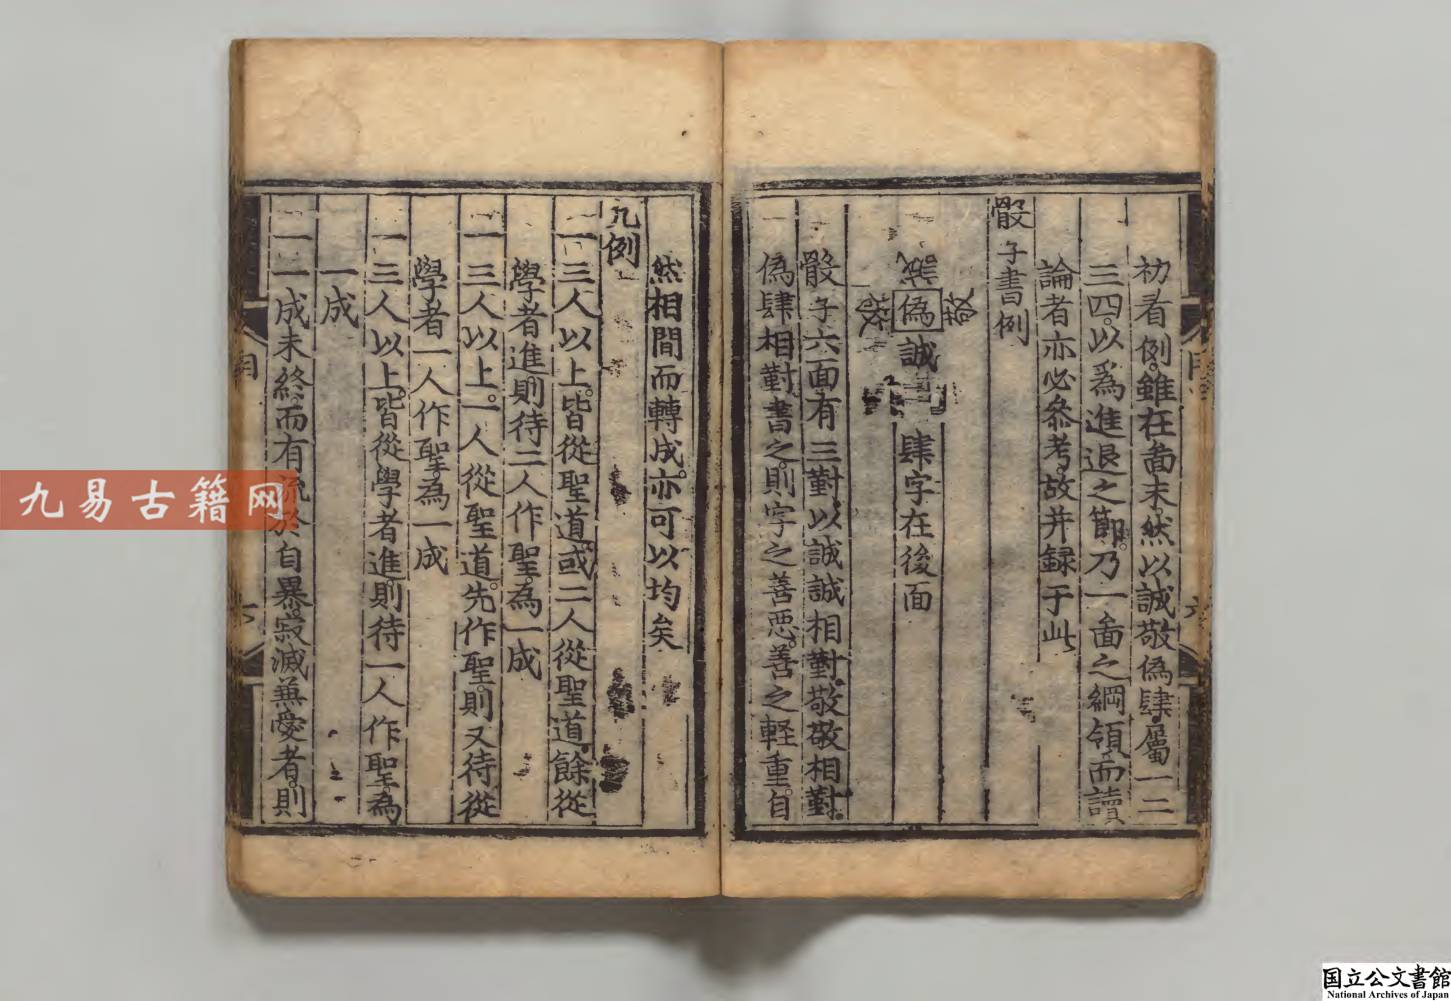 初看例。雖在啚末。然以誠敬僞肆。屬一二
三四。以爲進退之節。乃一啚之綱領。而讀
論者亦必叅考。故并録于此
骰子書例
敬
誠僞誠 肆字在後面
敬
骰子六面有三對。以誠誠相對。敬敬相對。
僞肆相對。書之。則字之善惡。善之輕重。自
然相間而轉成。亦可以均矣
凡例
一三人以上。皆從聖道。或二人從聖道。餘從
學者進。則待二人作聖。為一成
一三人以上。一人從聖道。先作聖。則又待從
學者一人作聖。為一成
一三人以上。皆從學者進。則待一人作聖。為
一成
一一成未終。而有流於自暴。寂滅。兼愛者。則
九易古籍网
国立公文書館
National Archives of Japan